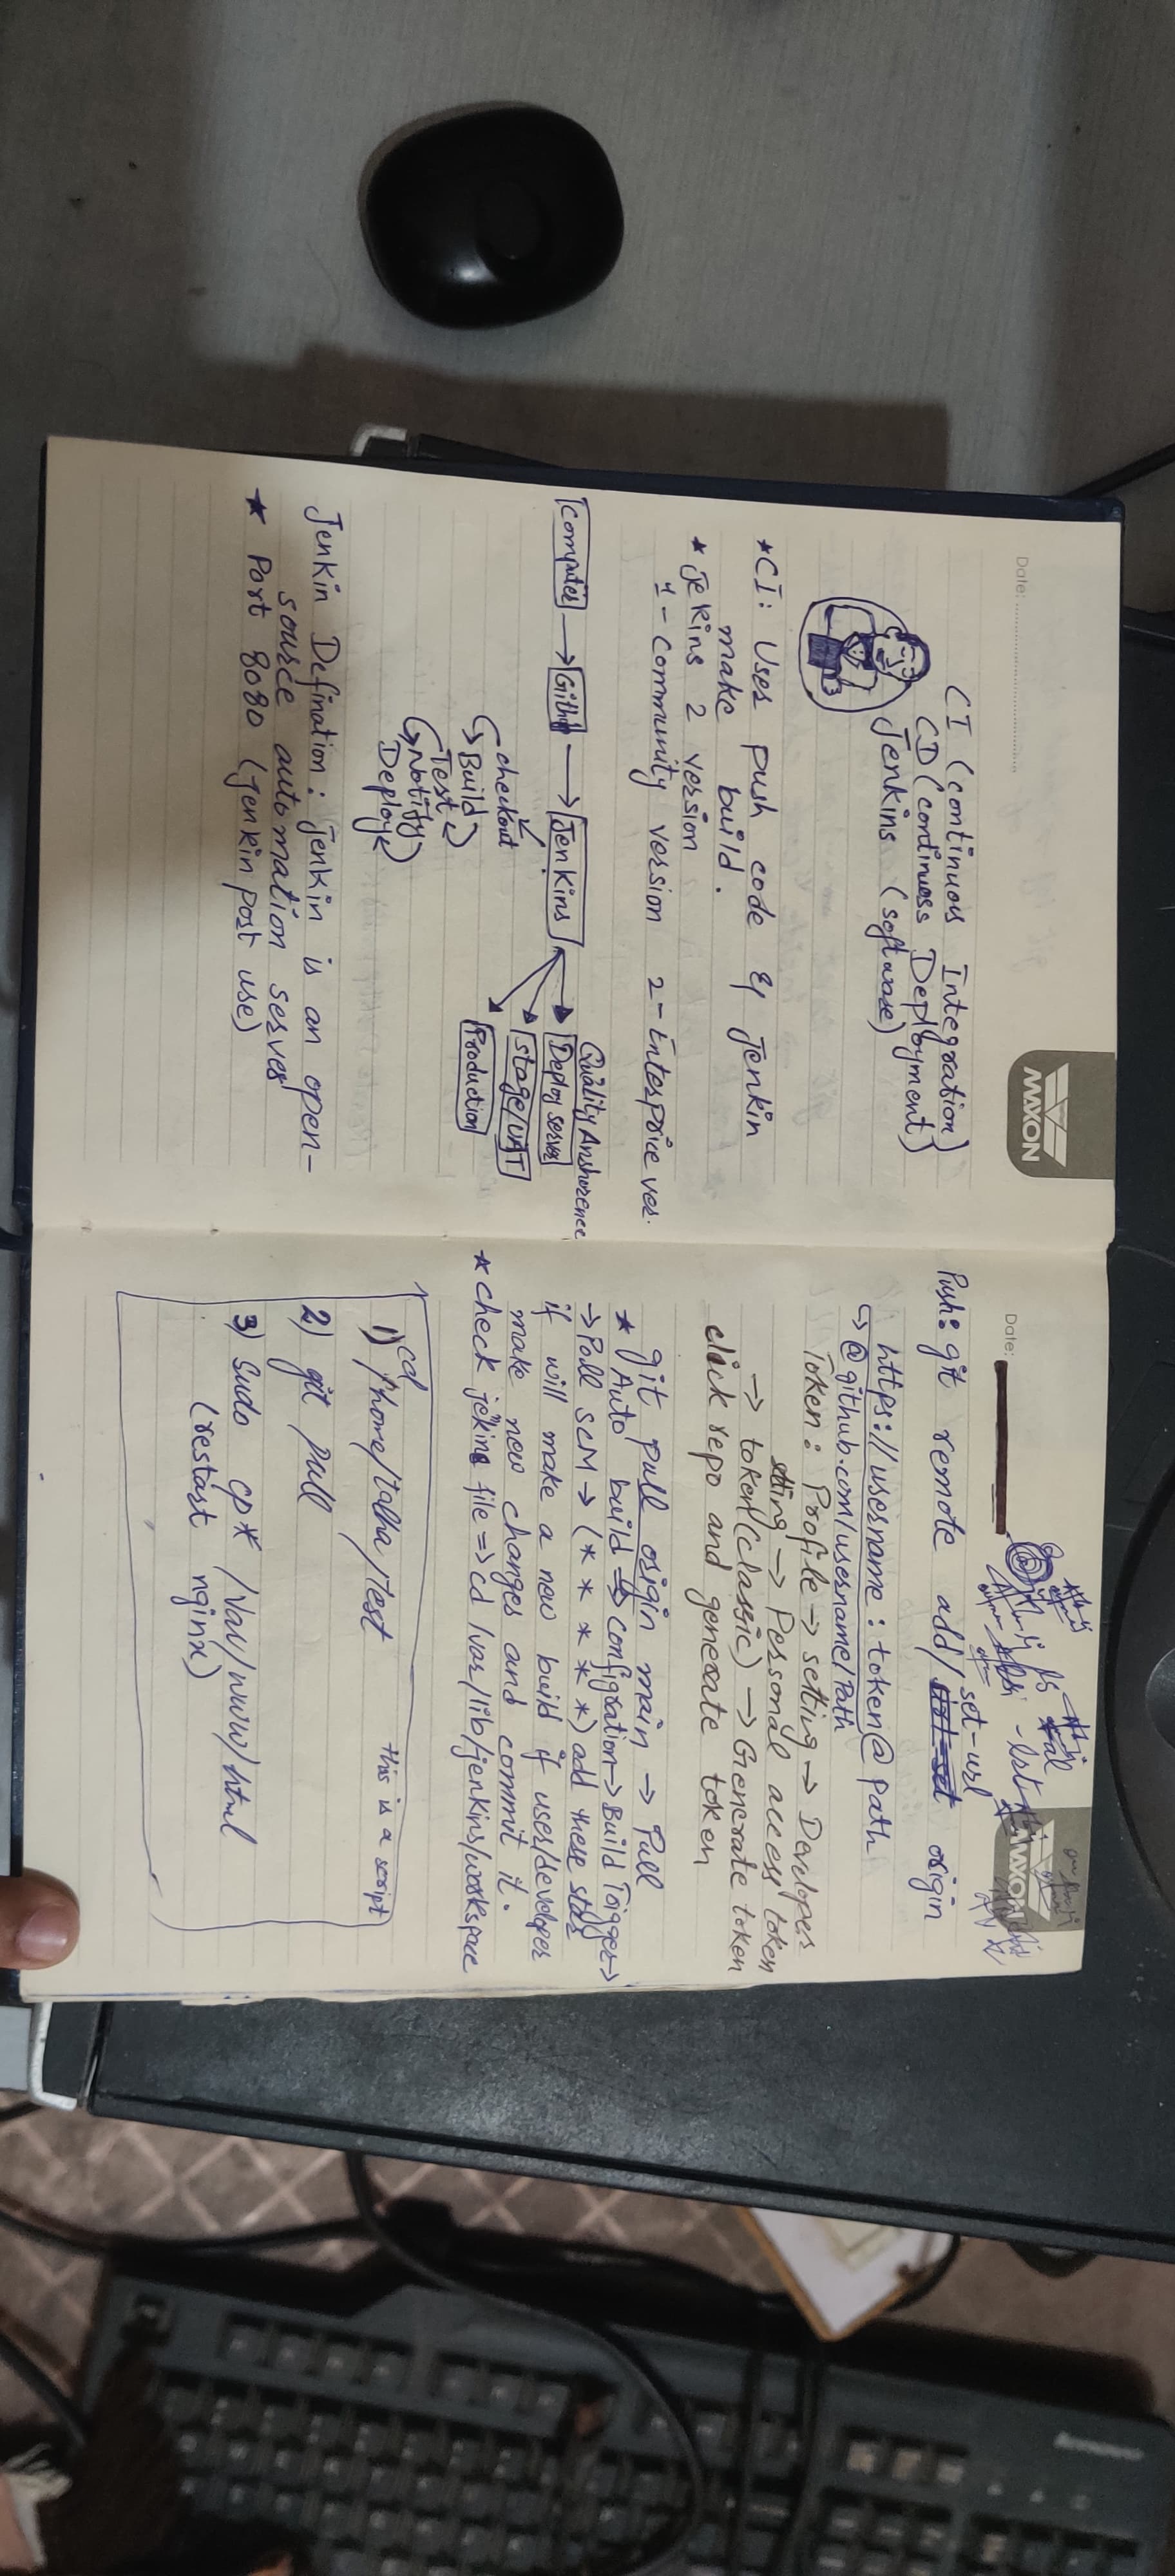 Date:
MAXON
CI (continuous Integration)
CD (continuoss Deployment)
Jenkins (software)
*CI: User push code & Jenkin
make build.
* Jekins 2 version
1 - Community version 2 - Enterprice ver.
Quality Anshorence
Computer → Github → Jenkins → Deploy server
Stage/UAT
Production
checkout
Build
Test
Notify
Deploy
Jenkin Defination: Jenkin is an open-
source automation server
★ Port 8080 (Jenkin post use)
Date:
MAXON
set-url
Push: git remote add/ origin
https://username:token@path
↳ @github.com/username/Path
Token: Profile → setting → Developers
setting → Personal access token
→ token(classic) → Generate token
click repo and generate token
git pull origin main → Pull
* Auto build ⇒ configration → Build Trigger →
→ Poll SCM → (* * * * *) add these stars
if will make a new build if user/developer
make new changes and commit it.
* check jekins file => cd /var/lib/jenkins/workspace
this is a script
1) cd /home/talha/test
2) git pull
3) Sudo cp* /var/www/html
(restart nginx)